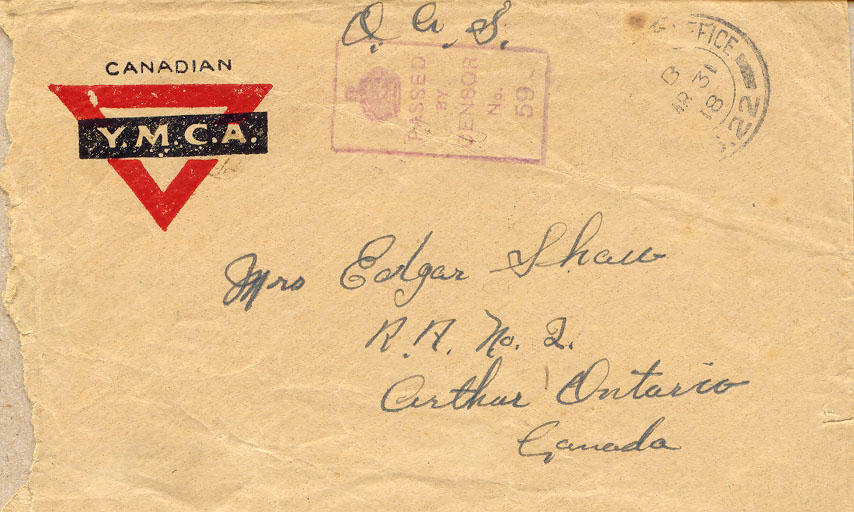 O. A. S.
CANADIAN
Y.M.C.A.
PASSED
BY
CENSOR
No.
59
OFFICE
B
31
18
22
Mrs Edgar Shaw
R.R. No. 2.
Arthur Ontario
Canada